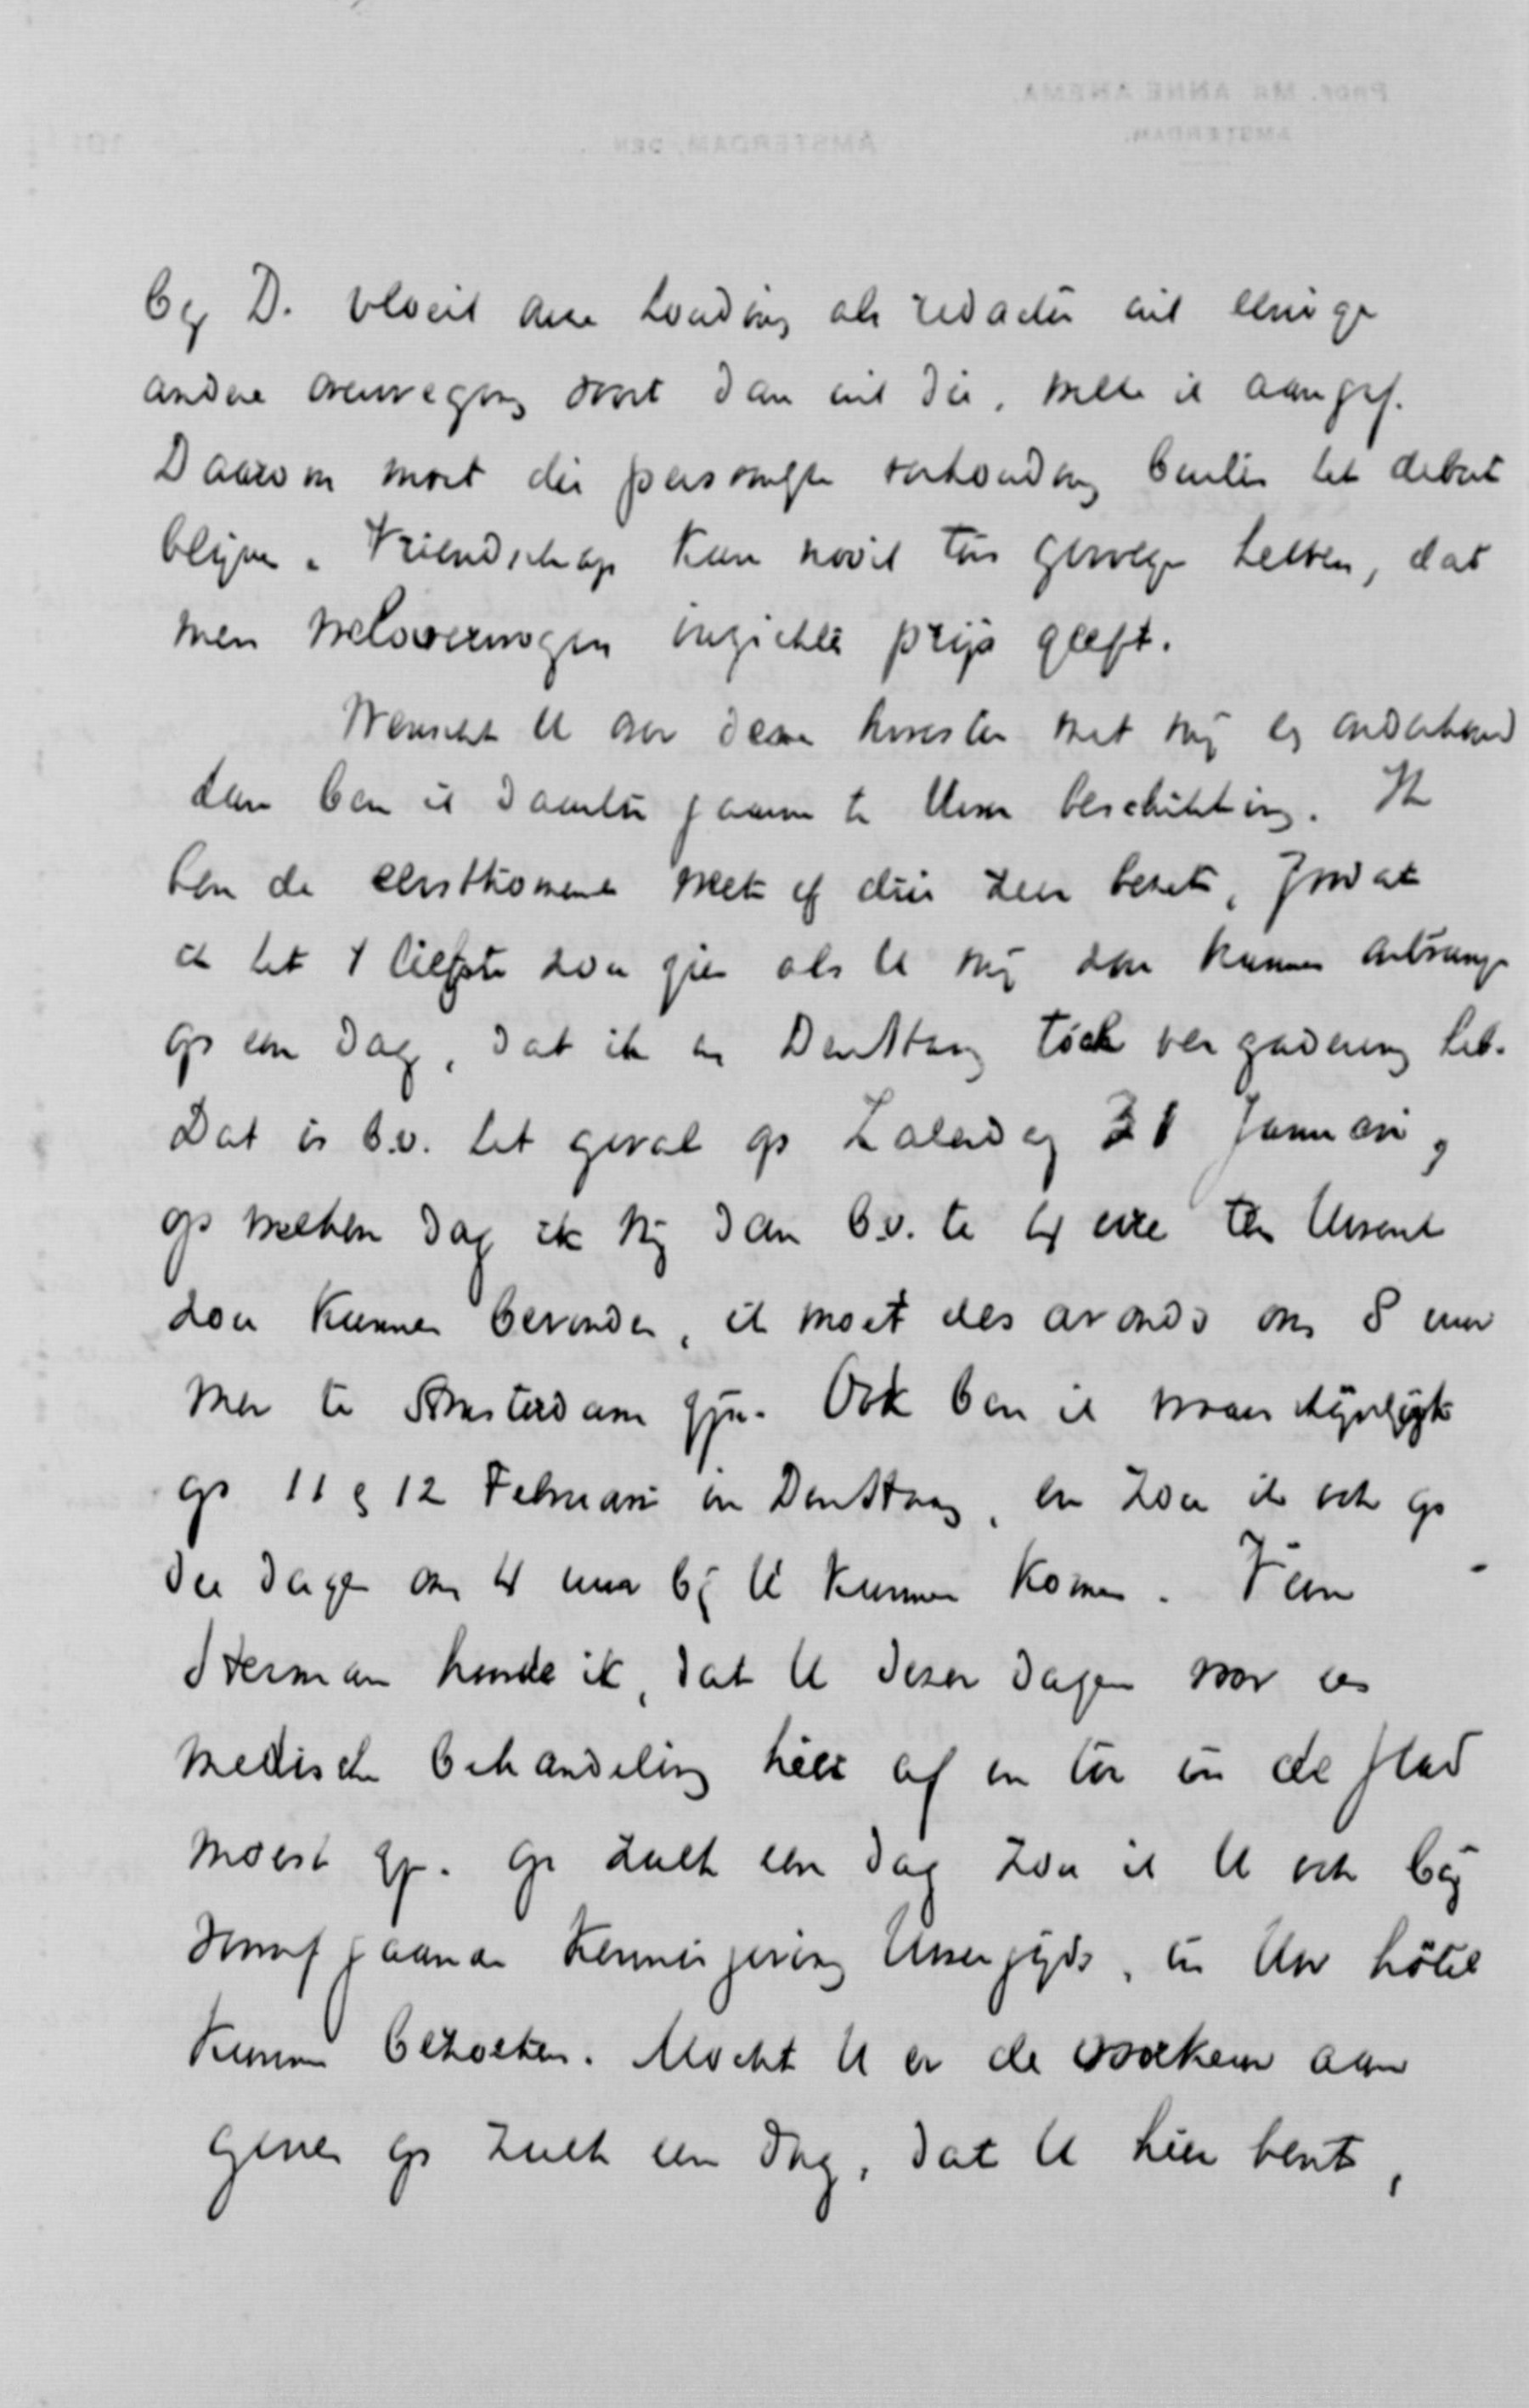 bij D. vloeit deze houding als redacteur uit eenige
andere overweging voort dan uit die, welke ik aangaf.
Daarom moet die persoonlijke verhouding buiten het debat
blijven. Vriendschap kan nooit ten gevolge hebben, dat
men weloverwogen inzichten prijs geeft.
Wenscht U over deze kwestie met mij een onderhoud
dan ben ik daartoe gaarne te Uwer beschikking. Ik
ben de eerstkomende week of drie zeer bezet, zoodat
ik het 't liefste zou zien als U mij zou kunnen ontvangen
op een dag, dat ik in Den Haag tóch vergadering heb.
Dat is b.v. het geval op Zaterdag 31 Januari,
op welken dag ik mij dan b.v. te 4 ure ten Uwent
zou kunnen bevinden, ik moet des avonds om 8 uur
weer te Amsterdam zijn. Ook ben ik waarschijnlijk
op 11 en 12 Februari in Den Haag, en zou ik ook op
die dagen om 4 uur bij U kunnen komen. Van
Herman hoorde ik, dat U dezer dagen voor een
medische behandeling hier af en toe in de stad
moest zijn. Op zulk een dag zou ik U ook bij
voorafgaande kennisgeving Uwerzijds, in Uw hôtel
kunnen bezoeken. Mocht U er de voorkeur aan
geven op zulk een dag, dat U hier bent,
Prof. Mr. ANNE ANEMA.
AMSTERDAM.
AMSTERDAM, DEN
191